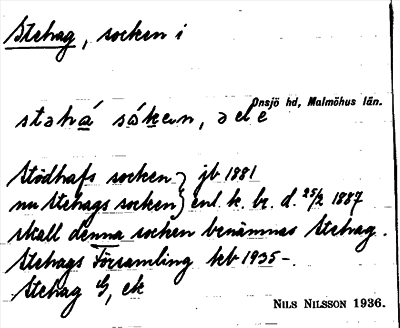 Stehag, socken i
Onsjö hd, Malmöhus län.
Stödhafs socken } jb 1881
nu Stehags socken } enl. k. br. d. 25/2 1887
skall denna socken benämnas Stehag.
Stehags Församling kb 1935-.
Stehag
NILS NILSSON 1936.